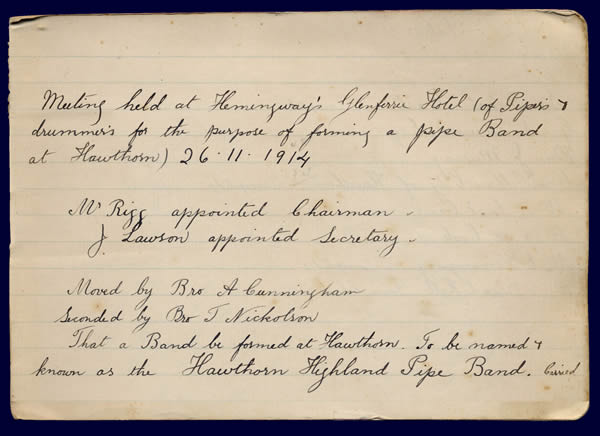 Meeting held at Hemingway's Glenferrie Hotel (of Piper's &
drummer's for the purpose of forming a pipe Band
at Hawthorn) 26.11.1914
Mr Rigg appointed Chairman.
J. Lawson appointed Secretary.
Moved by Bro A Cunningham
Seconded by Bro T Nickolson
That a Band be formed at Hawthorn. To be named &
known as the Hawthorn Highland Pipe Band. Carried